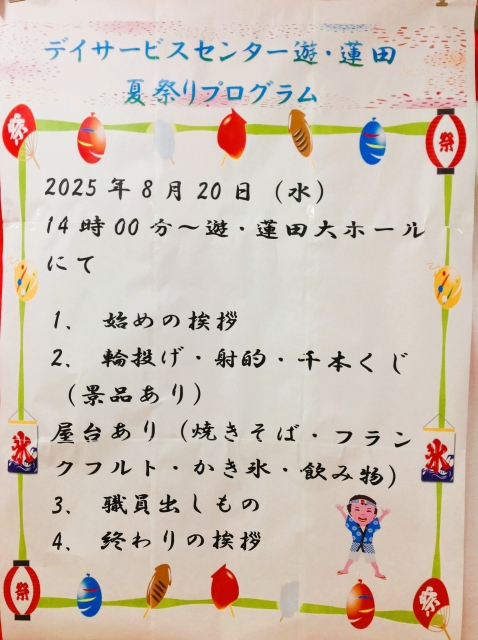 デイサービスセンター遊・蓮田
夏祭りプログラム
祭
祭
2025年8月20日（水）
14時00分～遊・蓮田大ホール
にて
1、 始めの挨拶
2、 輪投げ・射的・千本くじ
（景品あり）
屋台あり（焼きそば・フラン
クフルト・かき氷・飲み物）
氷
氷
3、 職員出しもの
4、 終わりの挨拶
祭
祭